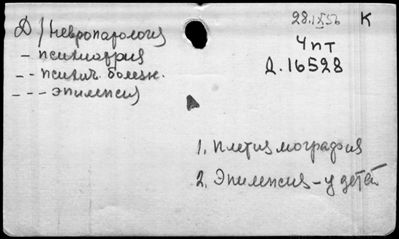 Д / Невропатология
– психиатрия
-- психич. болезн.
--- эпилепсия
28.IX.56 К
Ч пт
Д.16528
1. Плетизмография
2. Эпилепсия – у детей